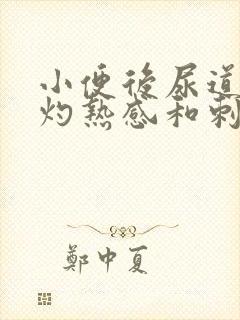 小便後尿道
灼熱感和刺
鄭中夏